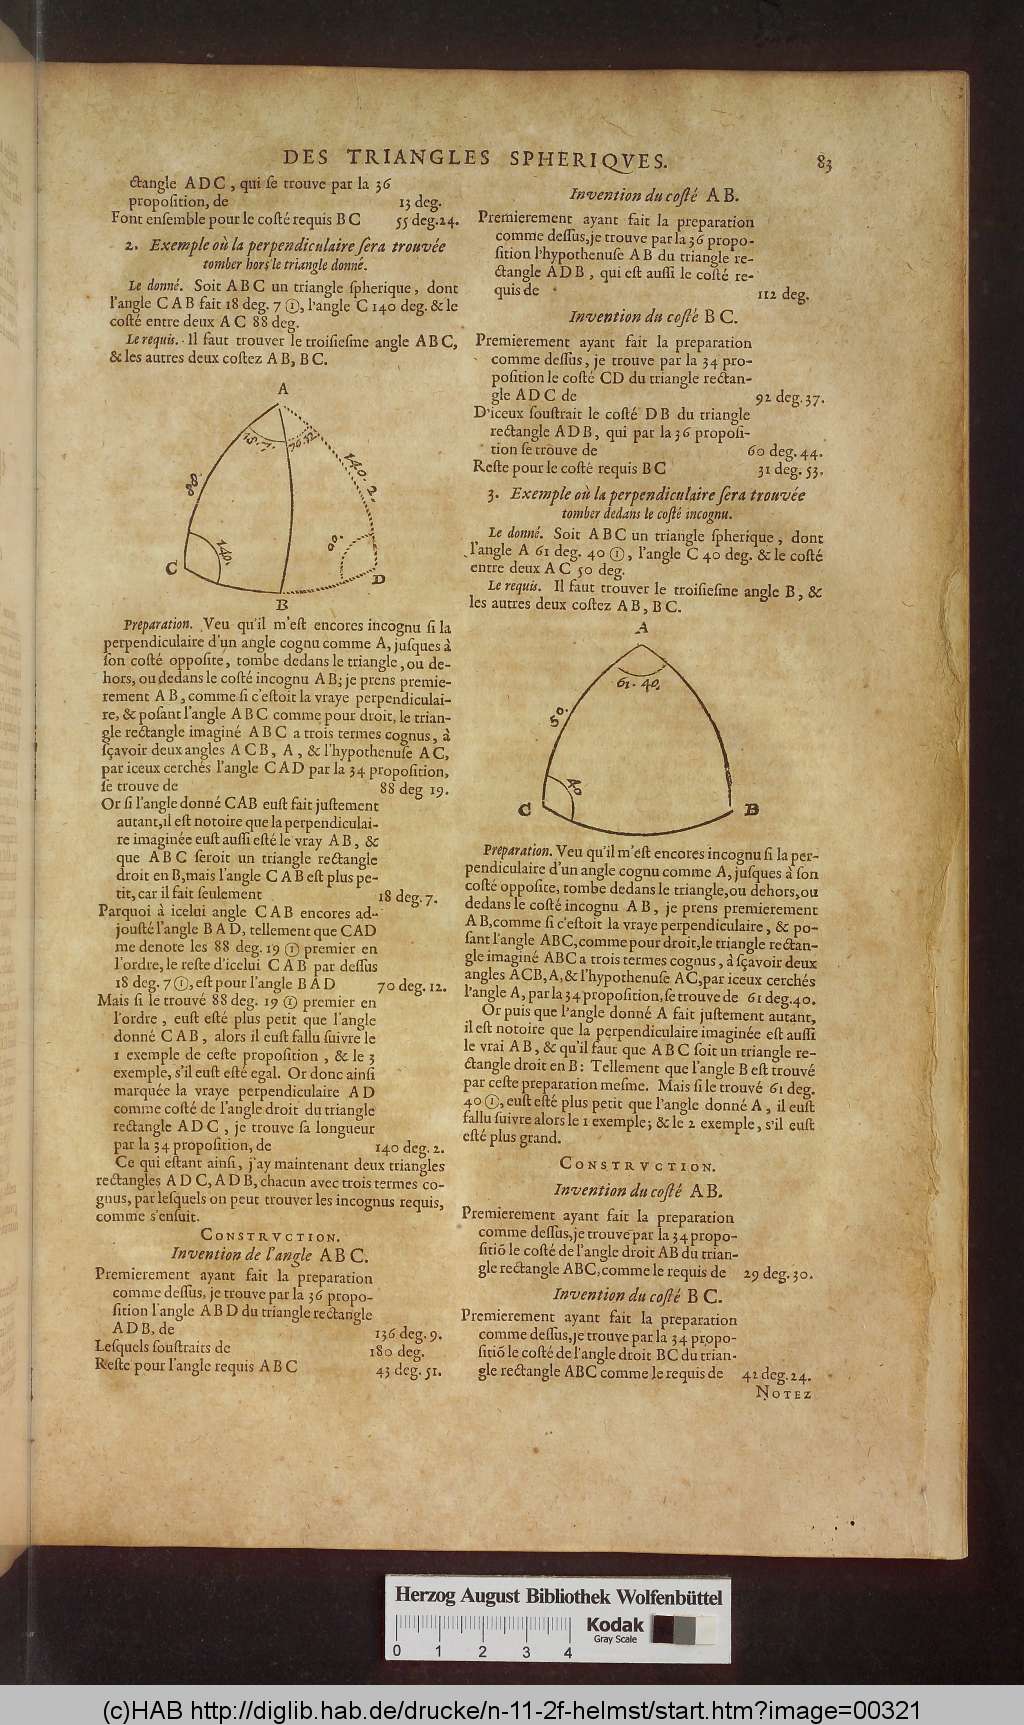 DES TRIANGLES SPHERIQVES. 83
ctangle ADC, qui ſe trouve par la 36
propoſition, de 13 deg.
Font enſemble pour le coſté requis BC 55 deg.24.
2. Exemple où la perpendiculaire ſera trouvée
tomber hors le triangle donné.
Le donné. Soit ABC un triangle ſpherique, dont
l'angle CAB fait 18 deg. 7 ①, l'angle C 140 deg. & le
coſté entre deux AC 88 deg.
Le requis. Il faut trouver le troiſieſme angle ABC,
& les autres deux coſtez AB, BC.
A
88.
140.
140. 2.
90.
C
D
B
Preparation. Veu qu'il m'eſt encores incognu ſi la
perpendiculaire d'un angle cognu comme A, juſques à
ſon coſté oppoſite, tombe dedans le triangle, ou de-
hors, ou dedans le coſté incognu AB; je prens premie-
rement AB, comme ſi c'eſtoit la vraye perpendiculai-
re, & poſant l'angle ABC comme pour droit, le trian-
gle rectangle imaginé ABC a trois termes cognus, à
ſçavoir deux angles ACB, A, & l'hypothenuſe AC,
par iceux cerchés l'angle CAD par la 34 propoſition,
ſe trouve de 88 deg 19.
Or ſi l'angle donné CAB euſt fait juſtement
autant, il eſt notoire que la perpendiculai-
re imaginée euſt auſſi eſté le vray AB, &
que ABC ſeroit un triangle rectangle
droit en B, mais l'angle CAB eſt plus pe-
tit, car il fait ſeulement 18 deg. 7.
Parquoi à icelui angle CAB encores ad-
jouſté l'angle BAD, tellement que CAD
me denote les 88 deg. 19 ① premier en
l'ordre, le reſte d'icelui CAB par deſſus
18 deg. 7 ①, eſt pour l'angle BAD 70 deg. 12.
Mais ſi le trouvé 88 deg. 19 ① premier en
l'ordre, euſt eſté plus petit que l'angle
donné CAB, alors il euſt fallu ſuivre le
1 exemple de ceſte propoſition, & le 3
exemple, s'il euſt eſté egal. Or donc ainſi
marquée la vraye perpendiculaire AD
comme coſté de l'angle droit du triangle
rectangle ADC, je trouve ſa longueur
par la 34 propoſition, de 140 deg. 2.
Ce qui eſtant ainſi, j'ay maintenant deux triangles
rectangles ADC, ADB, chacun avec trois termes co-
gnus, par leſquels on peut trouver les incognus requis,
comme s'enſuit.
CONSTRVCTION.
Invention de l'angle ABC.
Premierement ayant fait la preparation
comme deſſus, je trouve par la 36 propo-
ſition l'angle ABD du triangle rectangle
ADB, de 136 deg. 9.
Leſquels ſouſtraits de 180 deg.
Reſte pour l'angle requis ABC 43 deg. 51.
Invention du coſté AB.
Premierement ayant fait la preparation
comme deſſus, je trouve par la 36 propo-
ſition l'hypothenuſe AB du triangle re-
ctangle ADB, qui eſt auſſi le coſté re-
quis de 112 deg.
Invention du coſté BC.
Premierement ayant fait la preparation
comme deſſus, je trouve par la 34 pro-
poſition le coſté CD du triangle rectan-
gle ADC de 92 deg. 37.
D'iceux ſouſtrait le coſté DB du triangle
rectangle ADB, qui par la 36 propoſi-
tion ſe trouve de 60 deg. 44.
Reſte pour le coſté requis BC 31 deg. 53.
3. Exemple où la perpendiculaire ſera trouvée
tomber dedans le coſté incognu.
Le donné. Soit ABC un triangle ſpherique, dont
l'angle A 61 deg. 40 ①, l'angle C 40 deg. & le coſté
entre deux AC 50 deg.
Le requis. Il faut trouver le troiſieſme angle B, &
les autres deux coſtez AB, BC.
A
61. 40.
50.
40
C
B
Preparation. Veu qu'il m'eſt encores incognu ſi la per-
pendiculaire d'un angle cognu comme A, juſques à ſon
coſté oppoſite, tombe dedans le triangle, ou dehors, ou
dedans le coſté incognu AB, je prens premierement
AB, comme ſi c'eſtoit la vraye perpendiculaire, & po-
ſant l'angle ABC, comme pour droit, le triangle rectan-
gle imaginé ABC a trois termes cognus, à ſçavoir deux
angles ACB, A, & l'hypothenuſe AC, par iceux cerchés
l'angle A, par la 34 propoſition, ſe trouve de 61 deg.40.
Or puis que l'angle donné A fait juſtement autant,
il eſt notoire que la perpendiculaire imaginée eſt auſſi
le vrai AB, & qu'il faut que ABC ſoit un triangle re-
ctangle droit en B: Tellement que l'angle B eſt trouvé
par ceſte preparation meſme. Mais ſi le trouvé 61 deg.
40 ①, euſt eſté plus petit que l'angle donné A, il euſt
fallu ſuivre alors le 1 exemple; & le 2 exemple, s'il euſt
eſté plus grand.
CONSTRVCTION.
Invention du coſté AB.
Premierement ayant fait la preparation
comme deſſus, je trouve par la 34 propo-
ſitiō le coſté de l'angle droit AB du trian-
gle rectangle ABC, comme le requis de 29 deg. 30.
Invention du coſté BC.
Premierement ayant fait la preparation
comme deſſus, je trouve par la 34 propo-
ſitiō le coſté de l'angle droit BC du trian-
gle rectangle ABC comme le requis de 42 deg. 24.
NOTEZ
Herzog August Bibliothek Wolfenbüttel
0 1 2 3 4
Kodak
Gray Scale
(c)HAB http://diglib.hab.de/drucke/n-11-2f-helmst/start.htm?image=00321